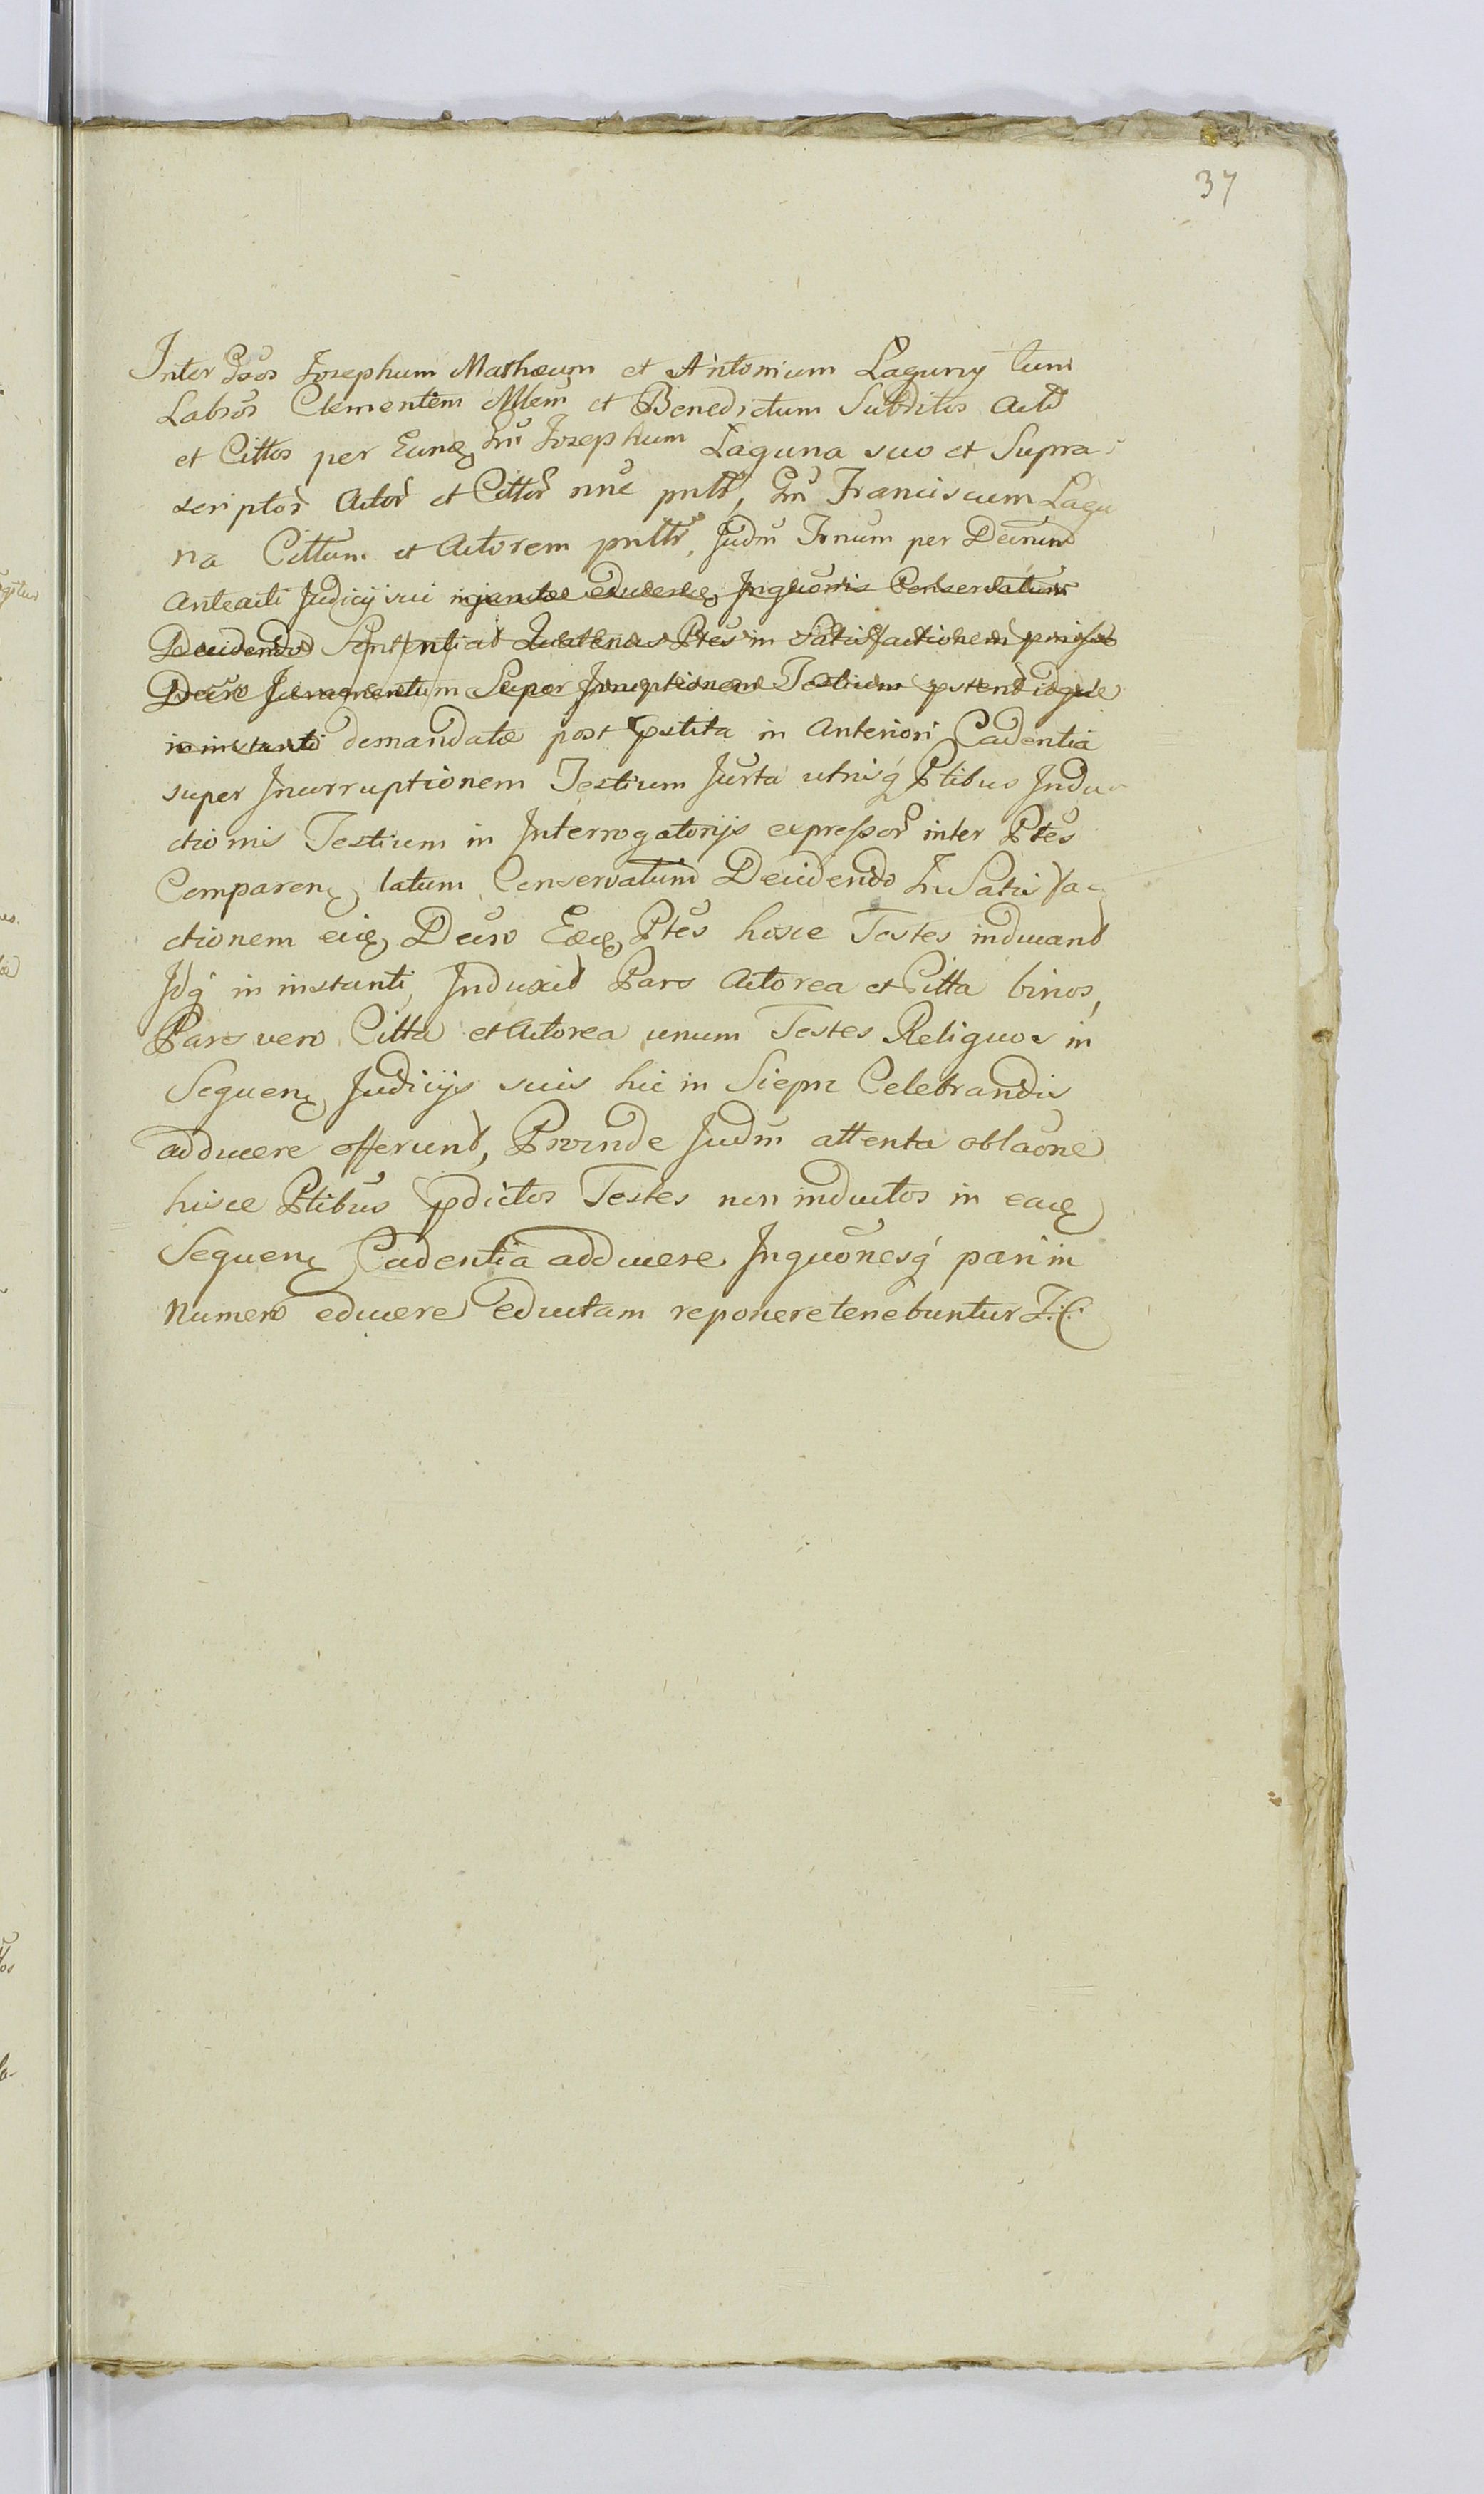 37
Inter Gsos Josephum Mathæum et Antonium Laguny tum
Labsos Clementem Mlem et Benedictum Subditos Act
et Cittos per Eund Gm Josephum Laguna suo et Supra
scriptor Actor et Cittor nnc pntt, Gm Franciscum Lagu
na Cittum et Actorem pntte, Judm Tnum per Decnum
Anteacti Judicij sui injunctæ educende Inquonis Conservatum
Decidendo Sententiat Quatenus Ptes in Satisfactionem
Decro Juramentum Super Testium idque
in instanti demandatæ post pstita in Anteriori Cadentia
super Incurruptionem Testium Jurta utrisq Ptibus Indu
ctionis Testium in Interrogatorijs expressor inter Ptes
Comparen latum Conservatum Decidendo In Satisfa
ctionem eid Decro Eæd Ptes hosce Testes inducant
Idq in instanti, Induxit Pars Actorea et Citta binos,
Pars vero Citta et Actorea unum Testes Reliquos in
Sequen Judicijs suis hic in Siepr Celebrandis
adducere offerunt, Proinde Judm attenta oblaone
hisce Ptibus pdictos Testes non inductos in ead
Sequen Cadentia adducere Inquonesq pari in
Numero educere eductam reponere tenebuntur J:C: